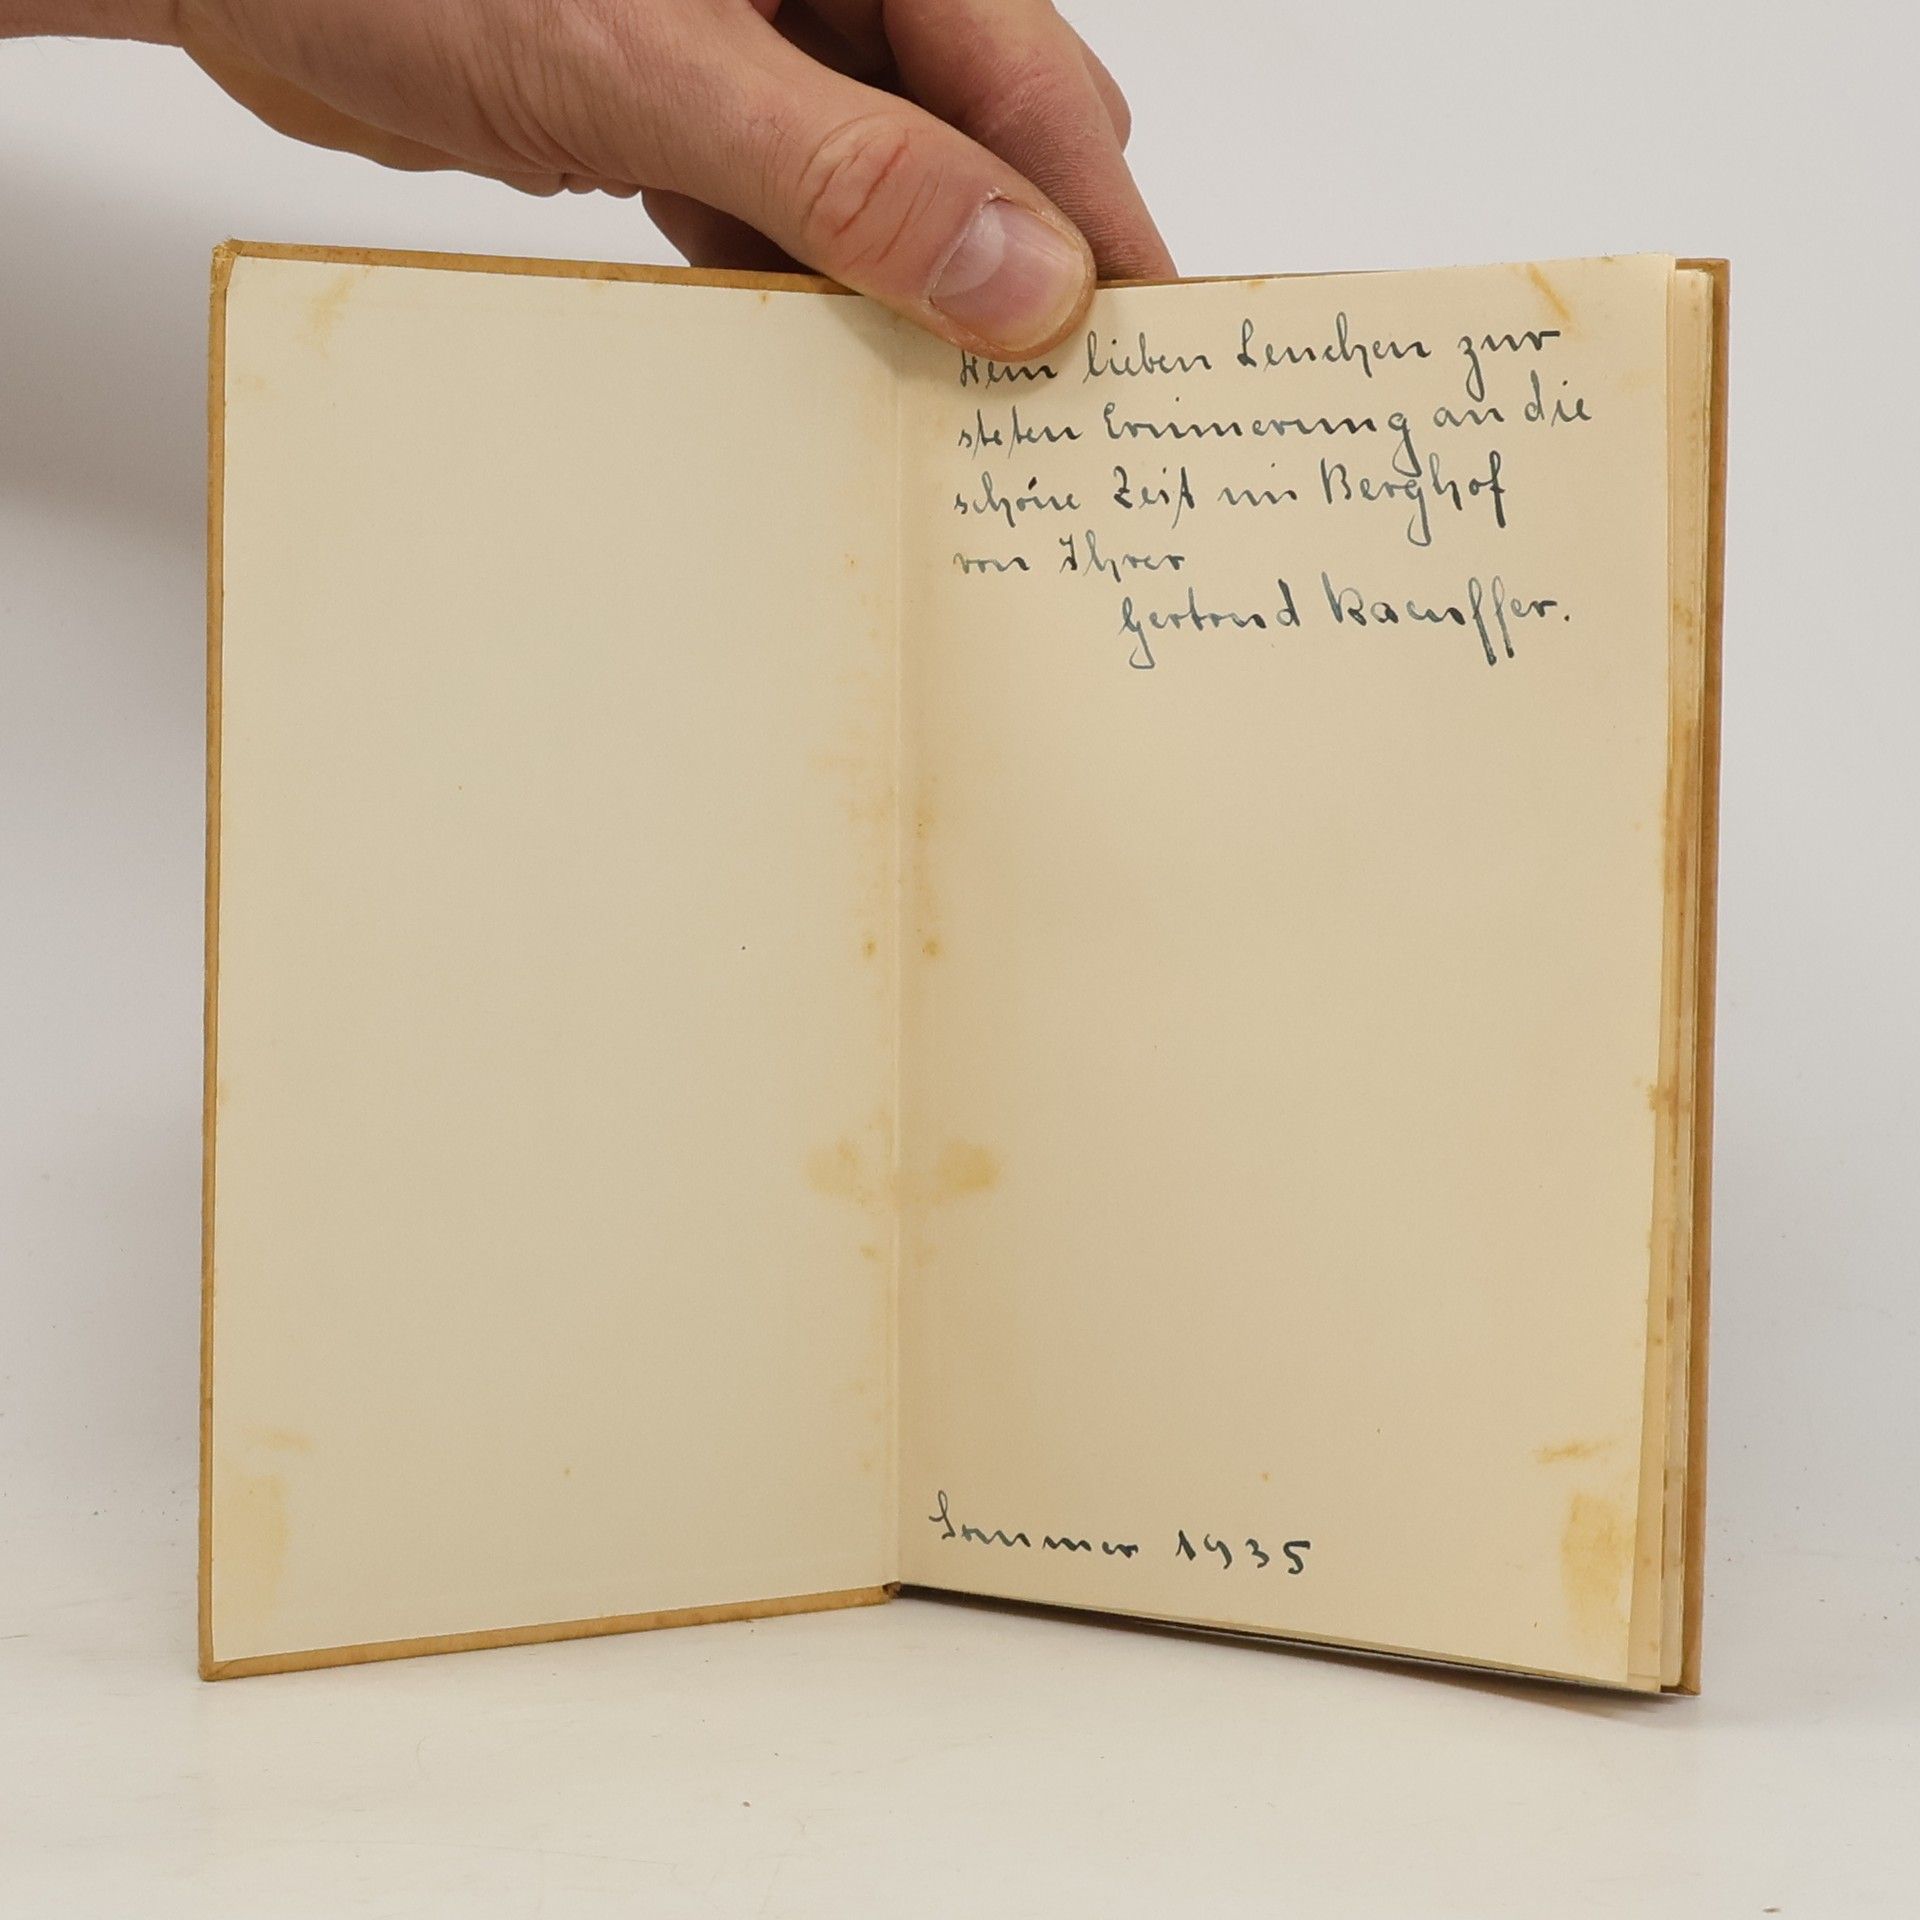 Dem lieben Lenchen zur
steten Erinnerung an die
schöne Zeit im Berghof
von Ihrer
Gertrud
Sommer 1935